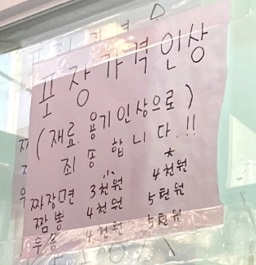 포장가격인상
(재료. 용기인상으로)
죄송합니다.!!
짜장면 3천원 4천원
짬뽕 4천원 5천원
우동 4천원 5천원